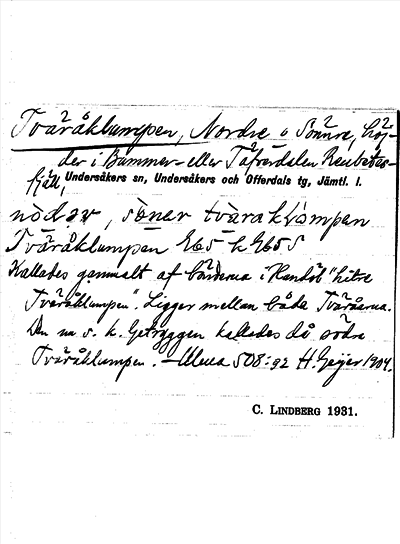 Tväråklumpen, Nordre o Sönnre, höj-
der i Bummer- eller Tåfrådalen Renbetes-
fjäll, Undersåkers sn, Undersåkers och Offerdals tg, Jämtl. l.
nòd ər, söner tvärakl'ompen
Tväråklumpen
Kallades gammalt af bönderna i Handöl "hitre
Tväråklumpen". Ligger mellan båda Tväråarna.
Den nu s. k. Getryggen kallades då södra
Tväråklumpen. — Ulma 508:92 H. Geijer 1904.
C. LINDBERG 1931.